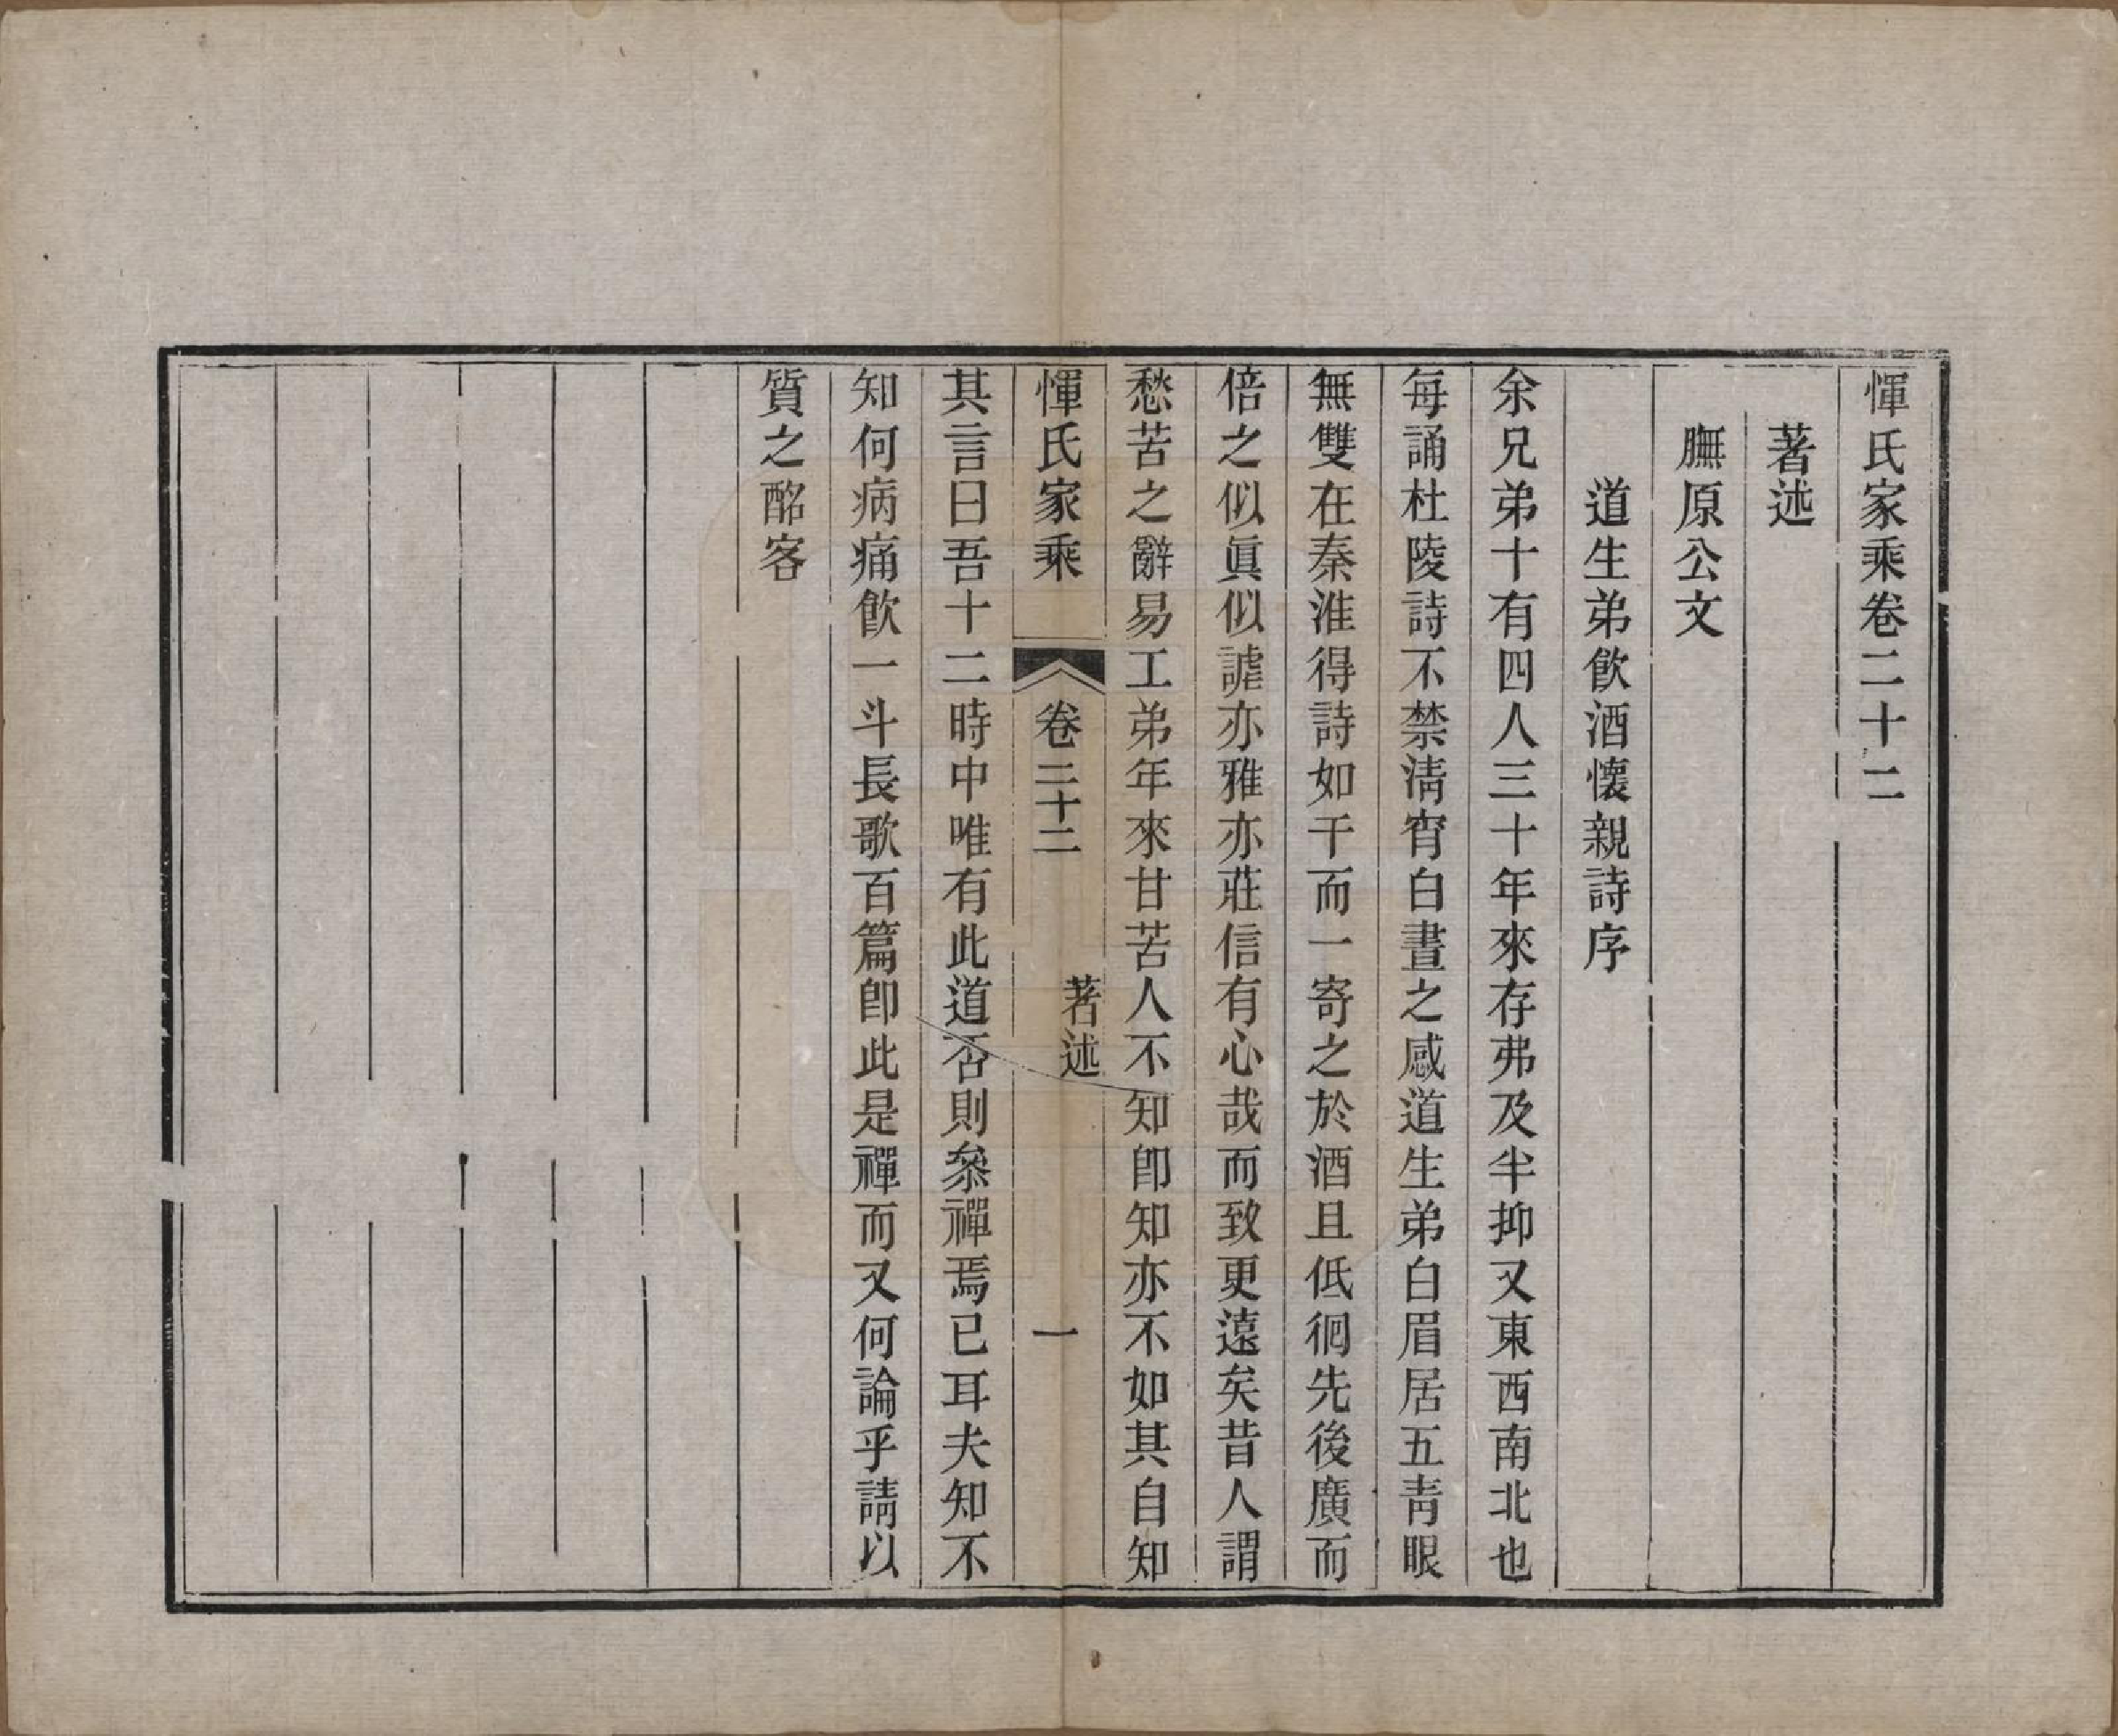 惲氏家乘卷二十二
著述
膴原公文
道生弟飮酒懷親詩序
余兄弟十有四人三十年來存弗及半抑又東西南北也
每誦杜陵詩不禁淸宵白晝之感道生弟白眉居五靑眼
無雙在秦淮得詩如干而一寄之於酒且低徊先後廣而
倍之似眞似謔亦雅亦莊信有心哉而致更遠矣昔人謂
愁苦之辭易工弟年來甘苦人不知卽知亦不如其自知
惲氏家乘
卷二十二
著述
一
其言曰吾十二時中唯有此道否則叅禪焉已耳夫知不
知何病痛飮一斗長歌百篇卽此是禪而又何論乎請以
質之酩客